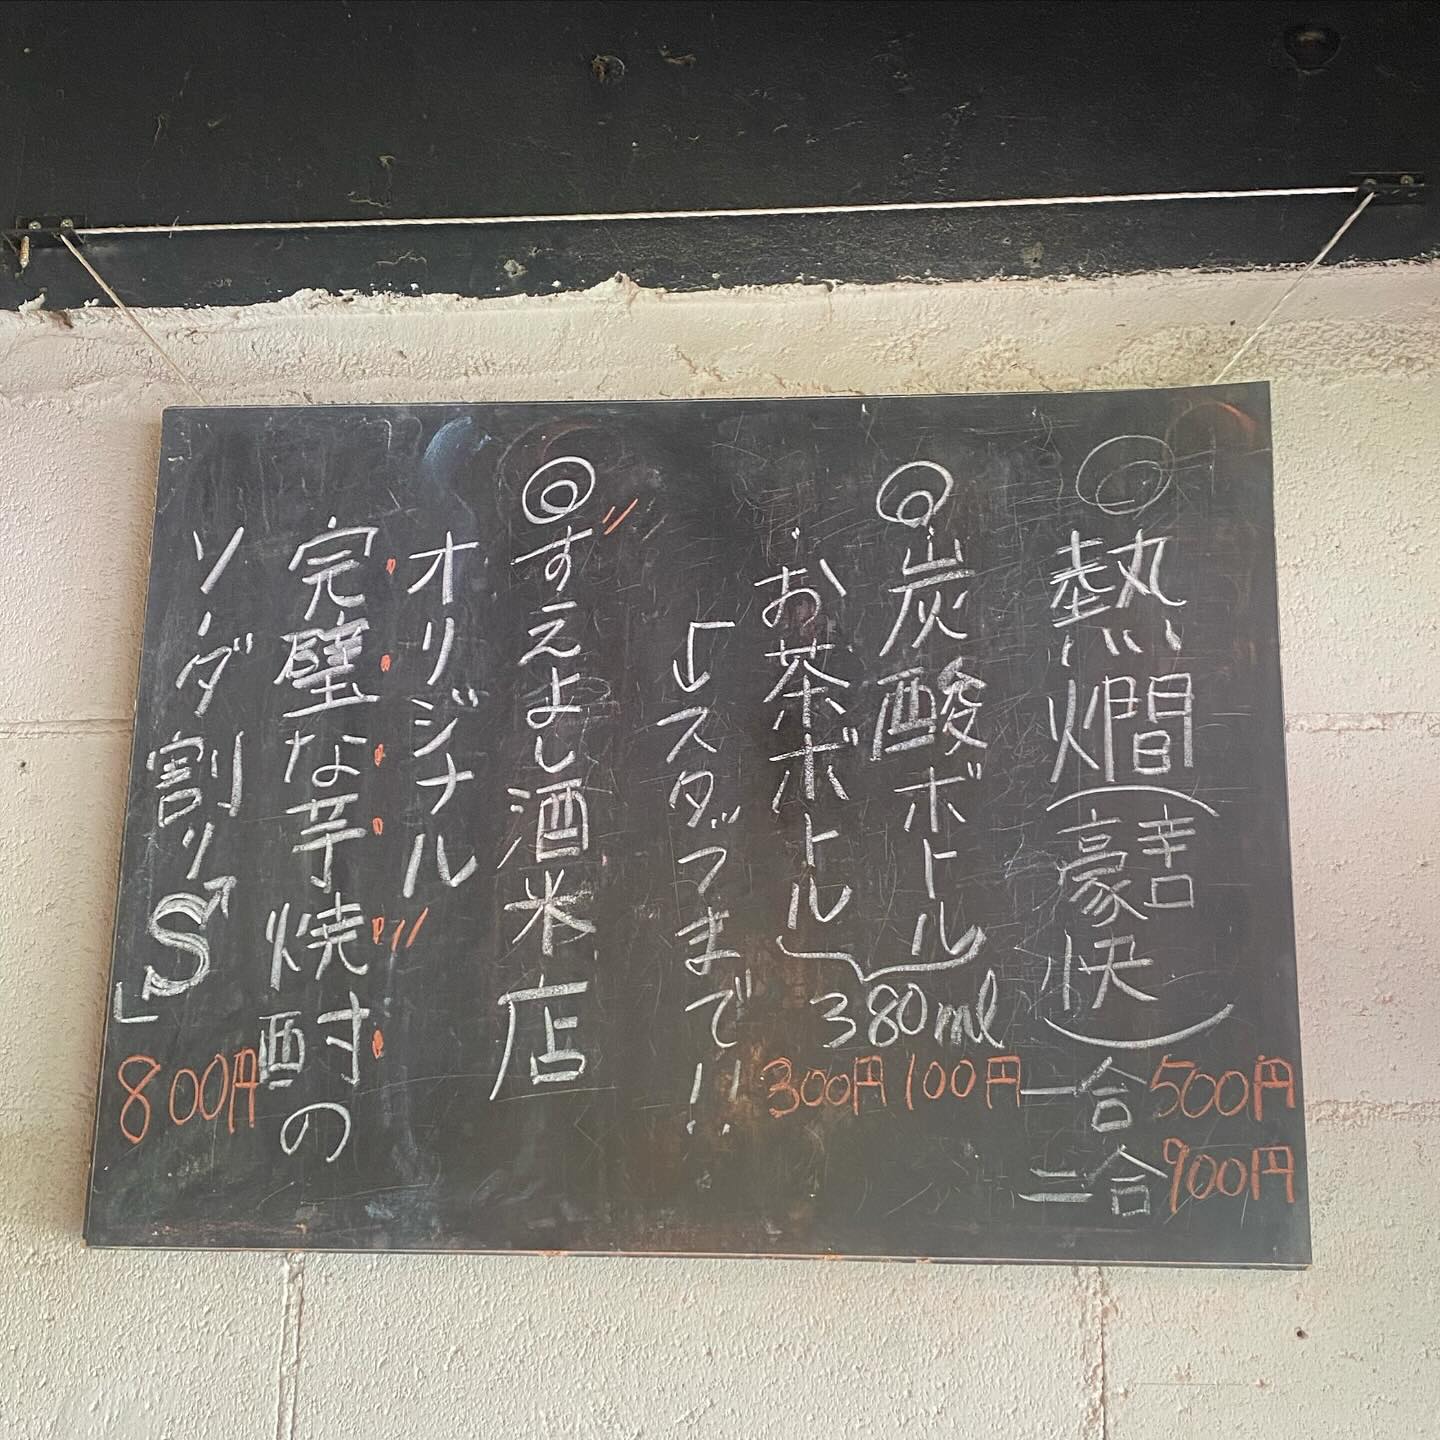 ◎熱燗(誉豪快)
一合500円
二合900円
◎炭酸ボトル
・お茶ボトル
380ml
100円
300円
↳スタッフまで!!
◎すえよし酒米店
オリジナル
完璧な芋焼酎の
ソーダ割り
S
800円